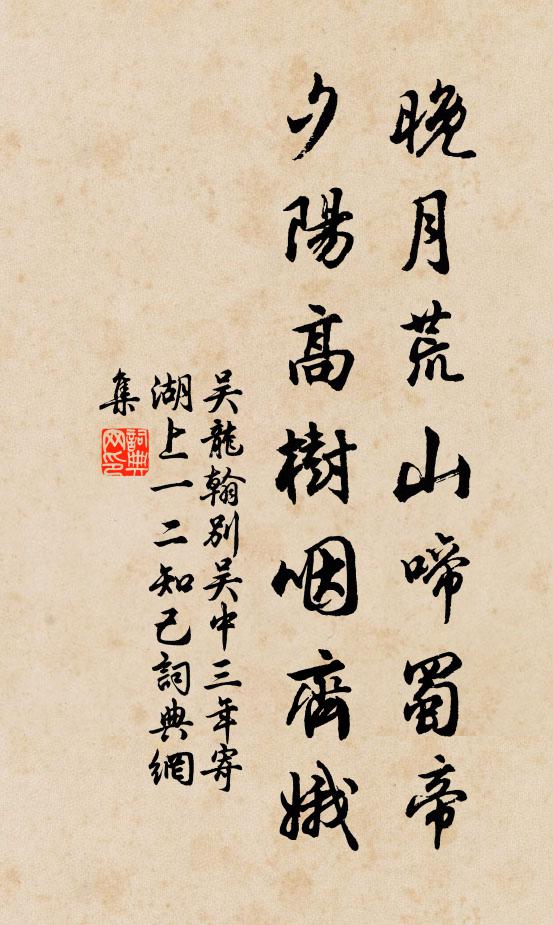 晚月荒山啼蜀帝
夕陽高樹咽齊娥
吴龍翰別吴中三年寄
湖上一二知己詞典網
集
詞典
网印